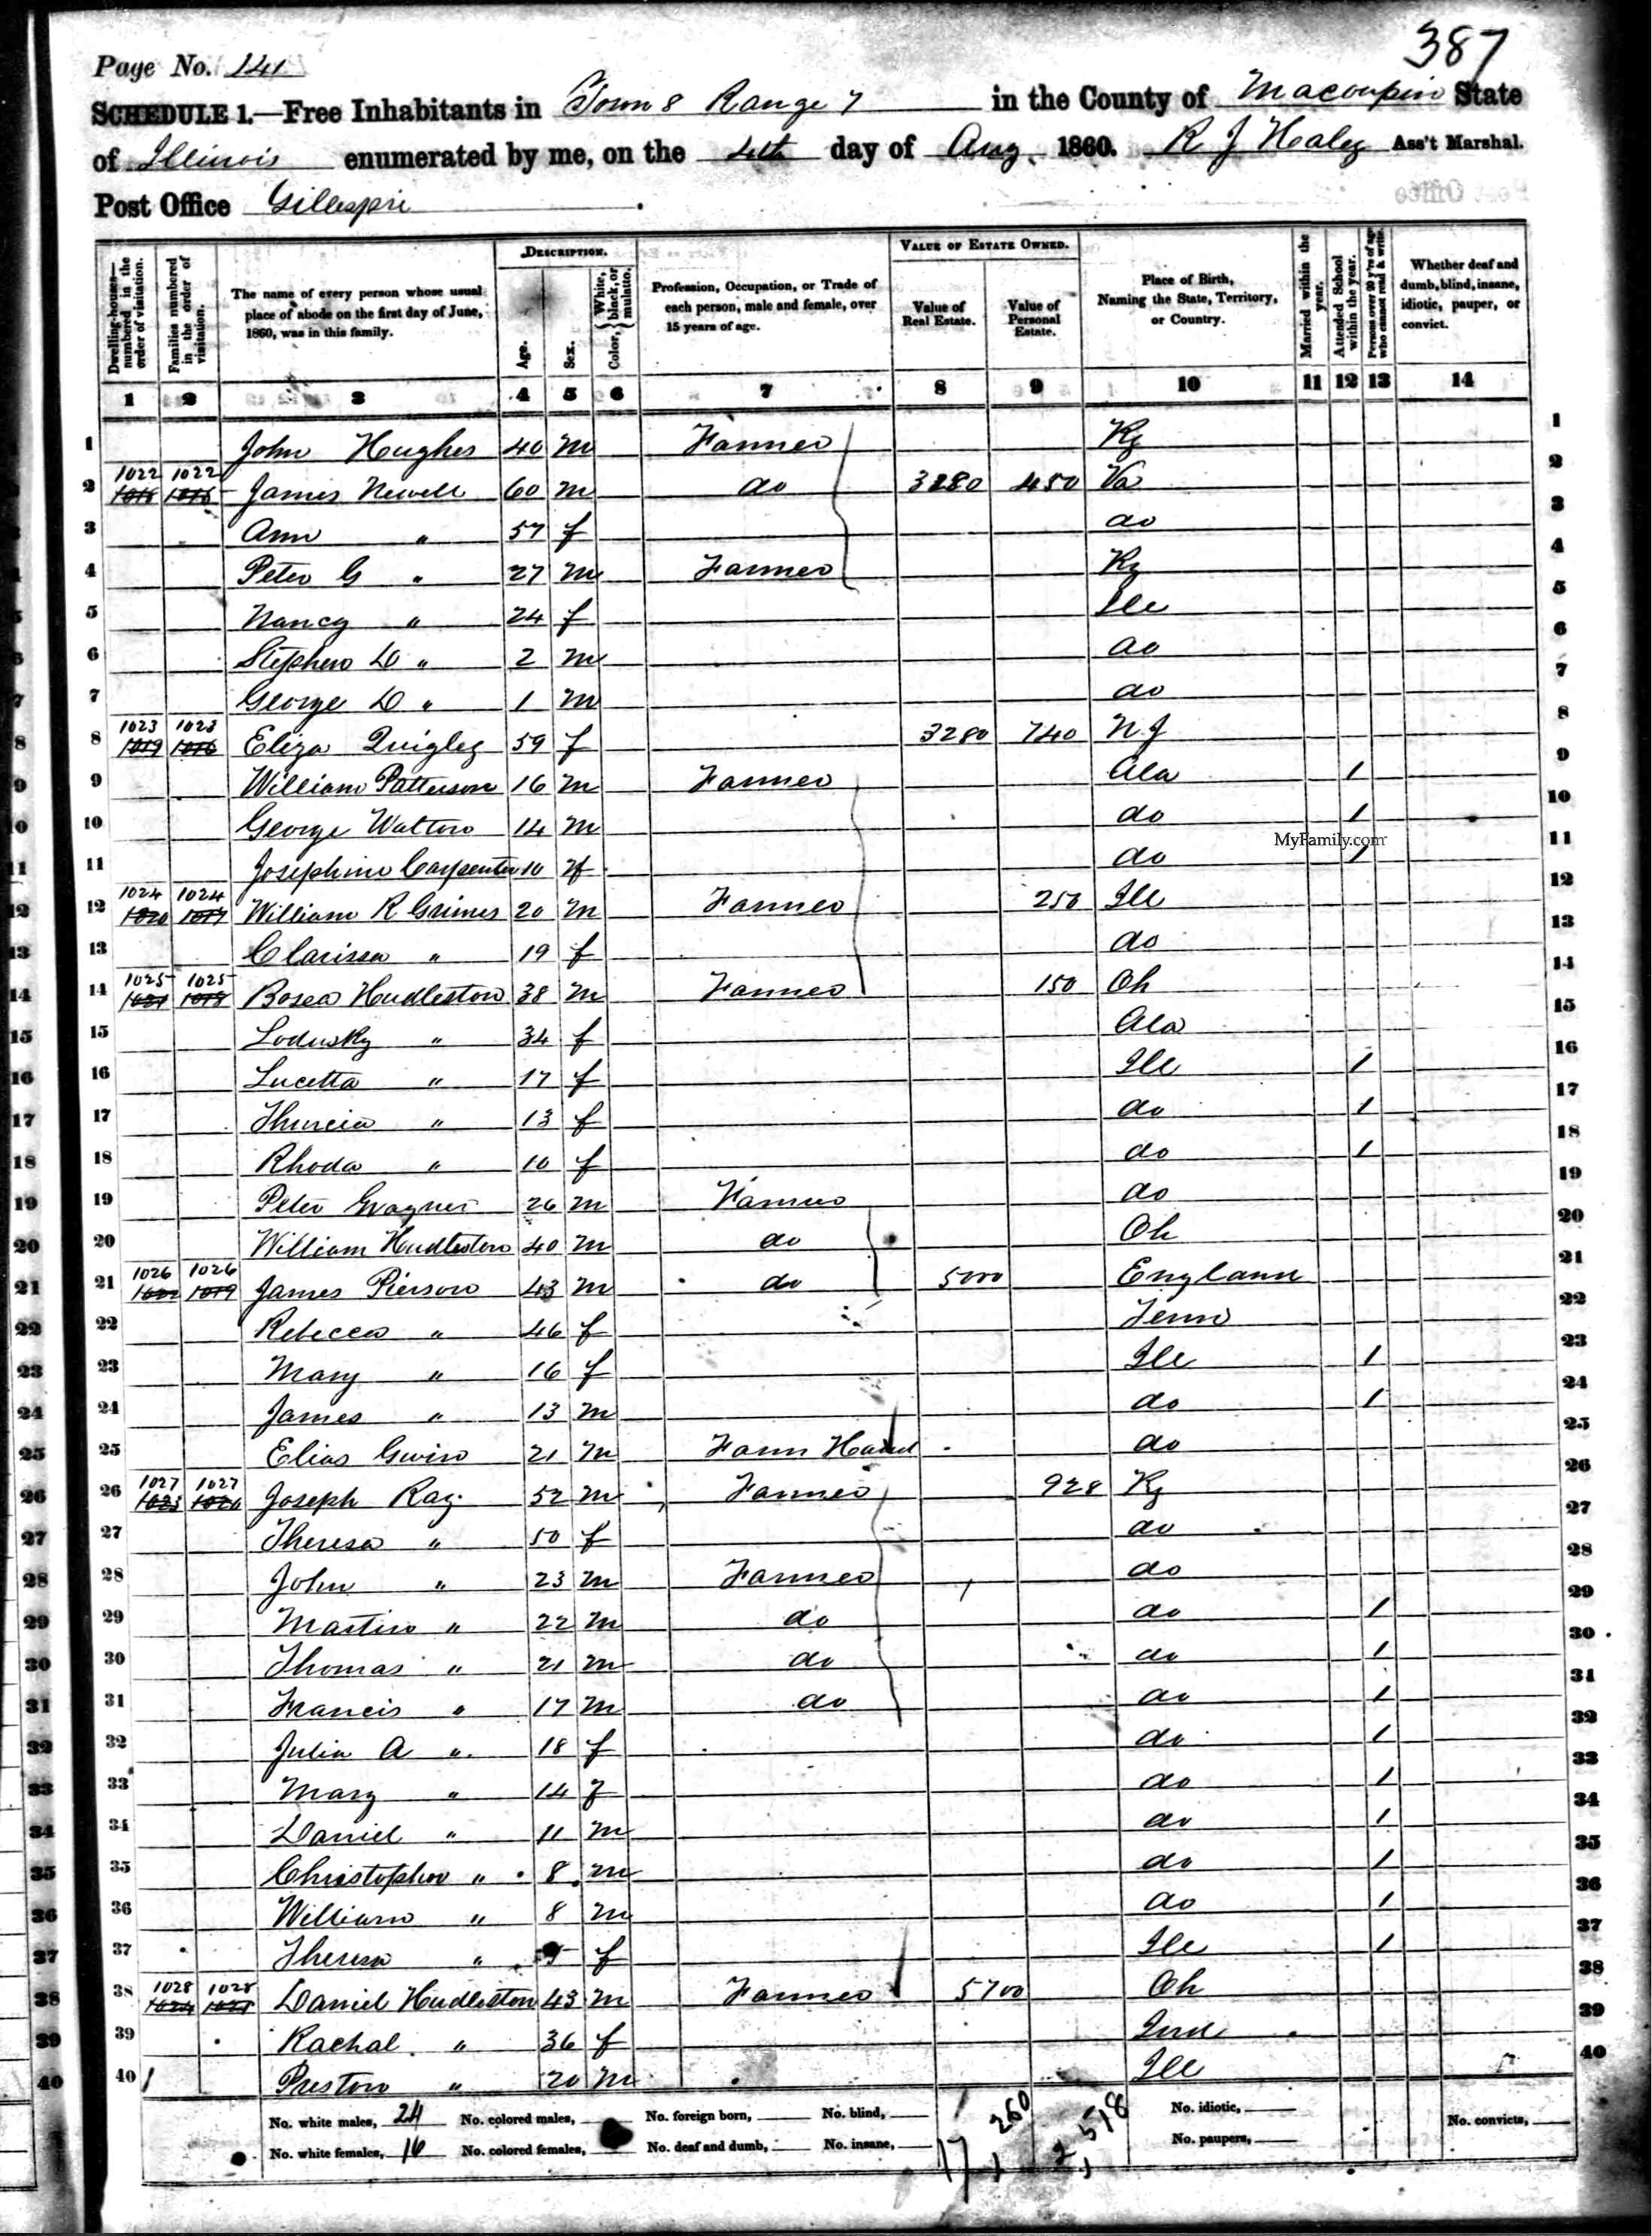 387
Page No. 141
SCHEDULE 1.—Free Inhabitants in Town 8 Range 7 in the County of Macoupin State
of Illinois enumerated by me, on the 4th day of Aug. 1860. R J Healey Ass't Marshal.
Post Office Gillespie
Dwelling-houses—numbered in the order of visitation. Families numbered in the order of visitation. The name of every person whose usual place of abode on the first day of June, 1860, was in this family. DESCRIPTION. Age. Sex. Color, {White, black, or mulatto. Profession, Occupation, or Trade of each person, male and female, over 15 years of age. VALUE OF ESTATE OWNED. Value of Real Estate. Value of Personal Estate. Place of Birth, Naming the State, Territory, or Country. Married within the year. Attended School within the year. Persons over 20 y'rs of age who cannot read & write. Whether deaf and dumb, blind, insane, idiotic, pauper, or convict.
1 2 3 4 5 6 7 8 9 10 11 12 13 14
1 John Hughes 40 m Farmer Ky 1
2 1022 1022 James Newell 60 m do 3280 450 Va 2
3 Ann " 57 f do 3
4 Peter G " 27 m Farmer Ky 4
5 Nancy " 24 f Ill 5
6 Stephen D " 2 m do 6
7 George D " 1 m do 7
8 1023 1023 Eliza Quigley 59 f 3280 740 N.J 8
9 William Patterson 16 m Farmer Ala 1 9
10 George Walton 14 m do 1 10
MyFamily.com
11 Josephine Carpenter 10 f do 1 11
12 1024 1024 William R Grimes 20 m Farmer 250 Ill 12
13 Clarissa " 19 f do 13
14 1025 1025 Bosea Hudleston 38 m Farmer 150 Oh 14
15 Lodusky " 34 f Ala 15
16 Lucetta " 17 f Ill 1 16
17 " 13 f do 1 17
18 Rhoda " 10 f do 1 18
19 Peter Wagner 26 m Farmer do 19
20 William Hudleston 40 m do Oh 20
21 1026 1026 James Pierson 43 m do 5000 England 21
22 Rebecca " 46 f Tenn 22
23 Mary " 16 f Ill 1 23
24 James " 13 m do 1 24
25 Elias Gwin 21 m Farm Hand do 25
26 1027 1027 Joseph Ray 52 m Farmer 928 Ky 26
27 Theresa " 50 f do 27
28 John " 23 m Farmer do 28
29 Martin " 22 m do do 1 29
30 Thomas " 21 m do do 1 30
31 Francis " 17 m do do 1 31
32 Julia A " 18 f do 1 32
33 Mary " 14 f do 1 33
34 Daniel " 11 m do 1 34
35 Christopher " 8 m do 1 35
36 William " 8 m do 1 36
37 Theresa " f Ill 1 37
38 1028 1028 Daniel Hudleston 43 m Farmer 5700 Oh 38
39 Rachal " 36 f Ind 39
40 Preston " 20 m Ill 40
No. white males, 24 No. colored males, No. foreign born, No. blind, 17,260 2,518 No. idiotic, No. convicts,
No. white females, 16 No. colored females, No. deaf and dumb, No. insane, No. paupers,